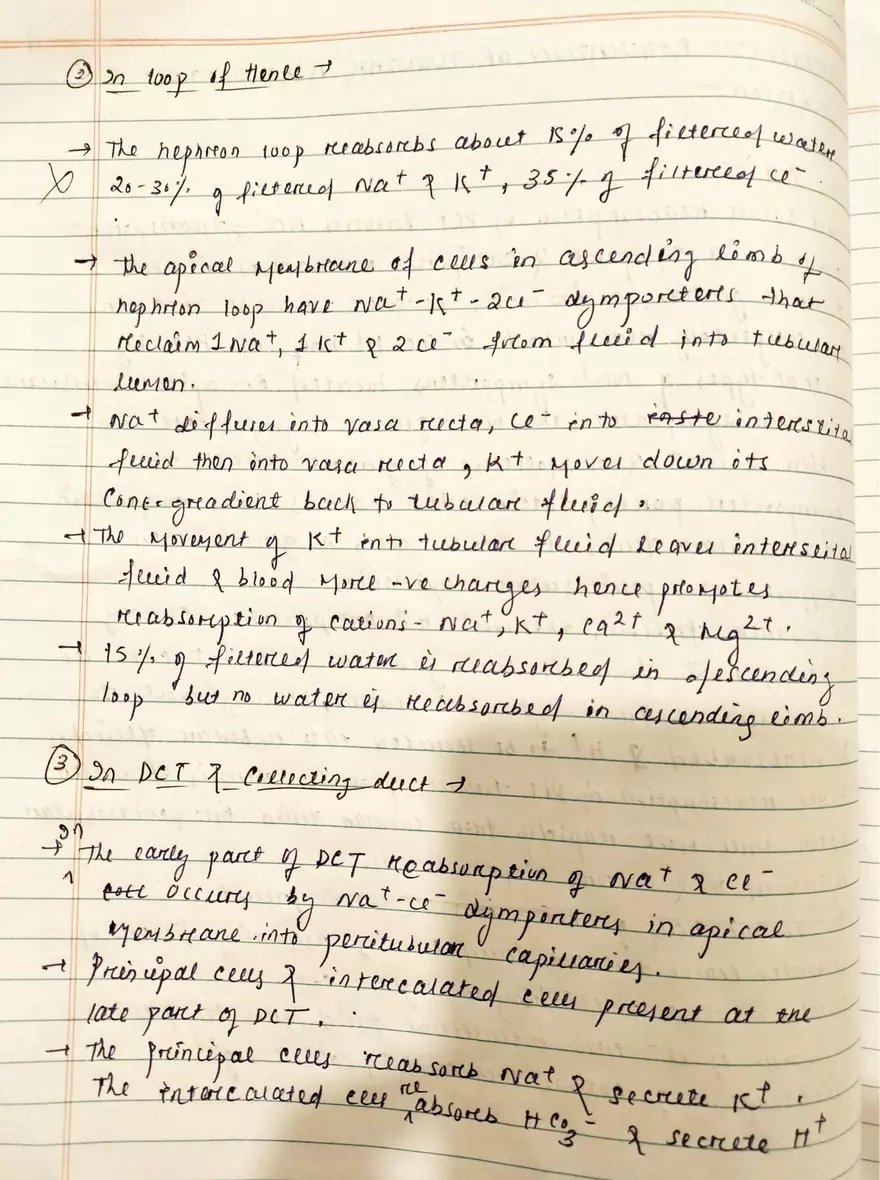 ② In loop of Henle →
→ The nephron loop reabsorbs about 15% of filtered water
20-30% of filtered Na⁺ & K⁺, 35% of filtered Cl⁻.
→ the apical membrane of cells in ascending limb of
nephron loop have Na⁺-K⁺-2Cl⁻ symporters that
reclaim 1 Na⁺, 1 K⁺ & 2 Cl⁻ from fluid into tubular
lumen.
→ Na⁺ diffuses into vasa recta, Cl⁻ into interstital
fluid then into vasa recta, K⁺ moves down its
Conc. greadient back to tubular fluid.
→ The movement of K⁺ into tubular fluid leaves interstital
fluid & blood more -ve charges hence promotes
reabsorption of cations - Na⁺, K⁺, Ca²⁺ & Mg²⁺.
→ 15% of filtered water is reabsorbed in descending
loop but no water is reabsorbed in ascending limb.
③ In DCT & Collecting duct →
→ In The early part of DCT reabsorption of Na⁺ & Cl⁻
occurs by Na⁺-Cl⁻ symporters in apical
membrane into peritubular capillaries.
→ Principal cells & intercalated cells present at the
late part of DCT.
→ The principal cells reabsorb Na⁺ & secrete K⁺.
The intercalated cells reabsorb HCO₃⁻ & secrete H⁺